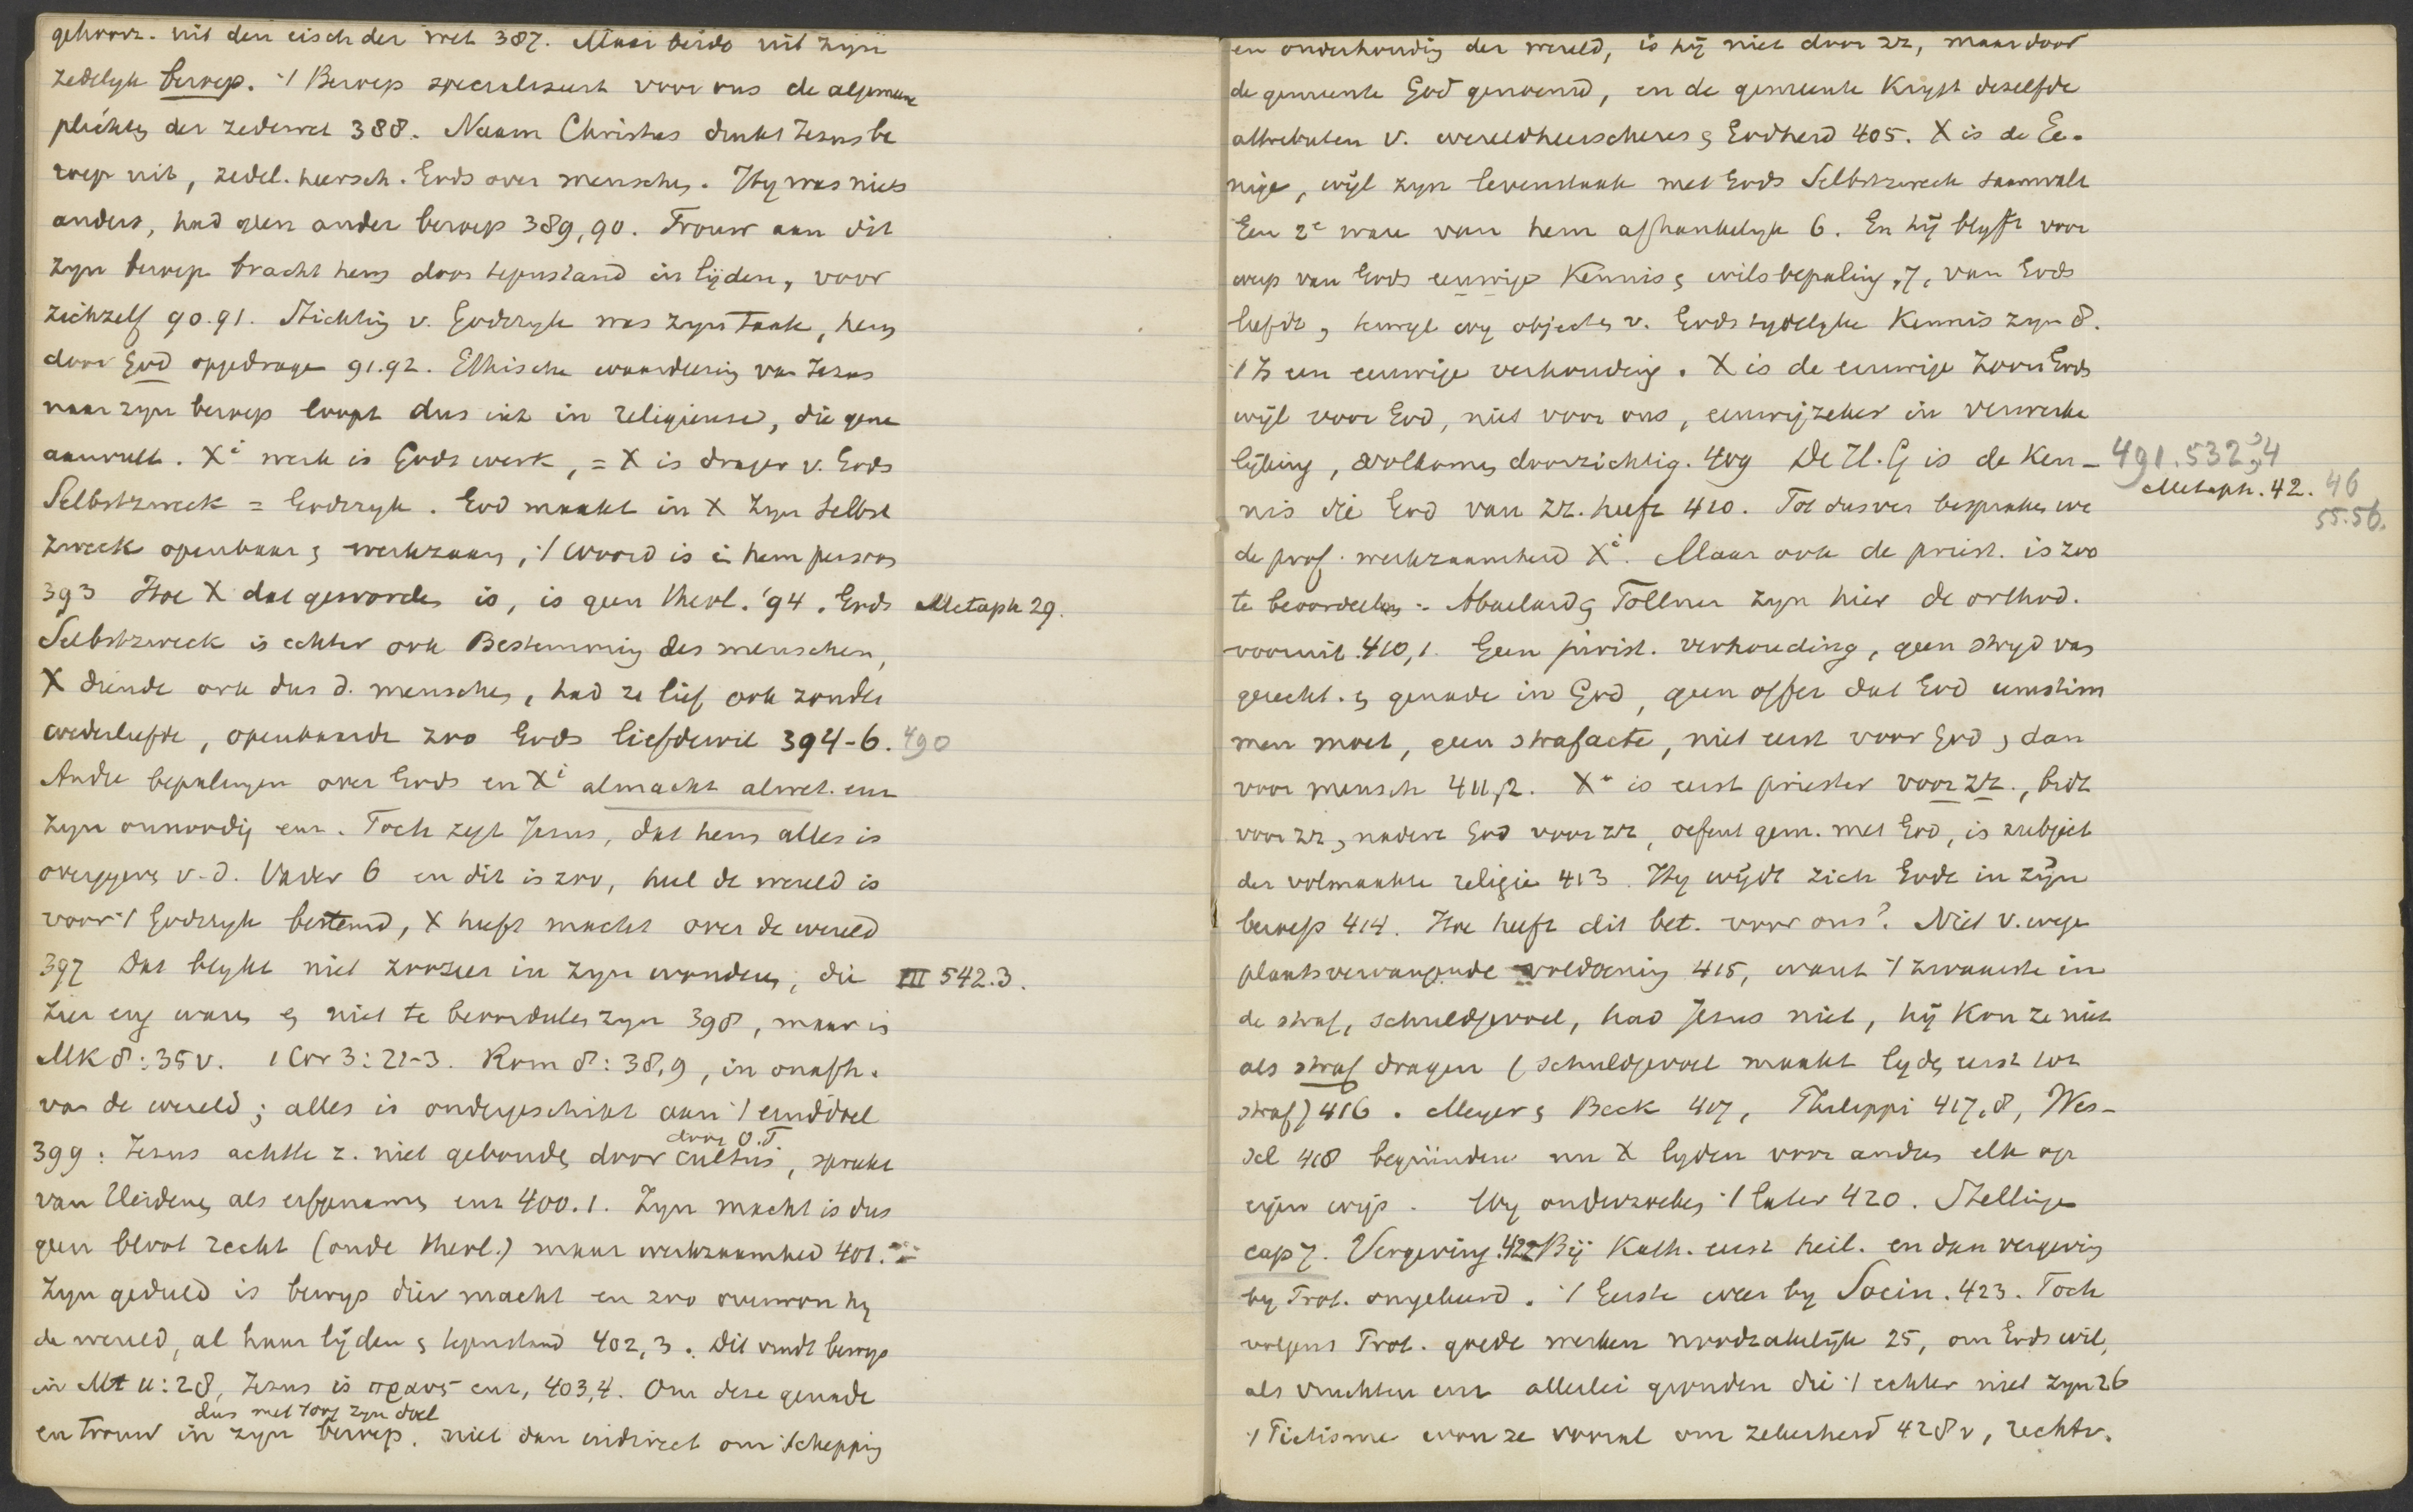 gehoorz. uit den eisch der wet 387. Maar beide uit zyn
zedelyk beroep. 't Beroep specialiseert voor ons de algemeene
plichten der zedewet 388. Naam Christus drukt Jezus be
roep uit, zedel. heersch. Gods over menschen. Hy was niets
anders, had geen ander beroep 389,90. Trouw aan dit
zyn beroep bracht hem door tegenstand in lijden, voor
zichzelf 90.91. Stichting v. Godsryk was zyn taak, hem
door God opgedragen 91.92. Ethische waardeering van Jezus
naar zyn beroep loopt dus uit in religieuse, die gene
aanvult. Xi werk is Gods werk, = X is drager v. Gods
Selbstzweck = Godsryk. God maakt in X zyn Selbst
zweck openbaar en werkzaam, 't woord is in hem persoon
393 Hoe X dat geworden is, is geen theol. '94. Gods Metaph 29.
Selbstzweck is echter ook Bestemming des menschen,
X diende ook dus d. menschen, had ze lief ook zonder
wederliefde, openbaarde zoo Gods liefdewil 394-6. 490
Andre bepalingen over Gods en Xi almacht alwet. enz
zyn onnoodig enz. Toch zegt Jezus, dat hem alles is
overgegeven v. d. Vader 6 en dit is zoo, heel de wereld is
voor 't Godsryk bestemd, X heeft macht over de wereld
397 Dat blykt niet zoozeer in zyn wonderen, die III 542.3.
zeer eng waren en niet te beoordeelen zyn 398, maar is
Mk 8:35v. 1 Cor 3:21-3. Rom 8:38,9, in onafh.
van de wereld; alles is ondergeschikt aan 't einddoel
399: Jezus achtte z. niet gebonden door cultus, sprake
door O.T
van Heidenen als erfgenamen enz 400.1. Zyn macht is dus
geen bloot recht (oude theol.) maar werkzaamheid 401.
Zyn geduld is bewys dier macht en zoo overwon hy
de wereld, al haar lijden en tegenstand 402,3. Dit vindt bewys
in Mt 11:28, Jezus is πραυς enz, 403,4. Om deze genade
dus met 't oog zyn doel
en trouw in zyn beroep, niet dan indirect om schepping
en onderhouding der wereld, is hij niet door zz, maar door
de gemeente God genoemd, en de gemeente Krygt dezelfde
attributen v. wereldheerscheres en Godheid 405. X is de Ee-
nige, wijl zyn levenstaak met Gods Selbstzweck saamvalt
Een 2e ware van hem afhankelyk 6. En hij blyft voor
werp van Gods eeuwige Kennis en wilsbepaling, 7, van Gods
liefde, terwyl wy objecten v. Gods tydelyke Kennis zyn 8.
't Is een eeuwige verhouding. X is de eeuwige Zoon Gods
wijl voor God, niet voor ons, eeuwig zeker in verwerke
lijking, volkomen doorzichtig. 409 De H.G is de Ken- 491.532,34
Metaph. 42. 46
55.56.
nis die God van zz. heeft 410. Tot dusver bespraken we
de prof. werkzaamheid Xi. Maar ook de priest. is zoo
te beoordeelen. Abaelard en Tollner zyn hier de orthod.
vooruit. 410,1. Geen jurist. verhouding, geen stryd van
gerecht. en genade in God, geen offer dat God umstim
men moet, geen strafacte, niet eerst voor God, dan
voor mensch 411,2. Xs is eerst priester voor zz., bidt
voor zz, nadert God voor zz, oefent gem. met God, is subject
der volmaakte religie 413. Hy wijdt zich Gode in zijn
beroep 414. Hoe heeft dit bet. voor ons? Niet v. wege
plaatsvervangende voldoening 415, want 't zwaarste in
de straf, schuldgevoel, had Jezus niet, hij Kon ze niet
als straf dragen (schuldgevoel maakt lyden eerst tot
straf) 416. Meyer en Beck 417, Philippi 417,8, Wes-
sel 418 begründen nu X lyden voor anderen elk op
eigen wijs. Wy onderzoeken 't later 420. Stellingen
cap 7. Vergeving. 422 Bij Kath. eerst heil. en dan vergeving
by Prot. omgekeerd. 't Eerste weer by Socin. 423. Toch
volgens Prot. goede werken noodzakelijk 25, om Gods wil,
als vruchten enz allerlei gronden die 't echter niet zyn 26
't Piëtisme won ze vooral om zekerheid 428v, rechtv.